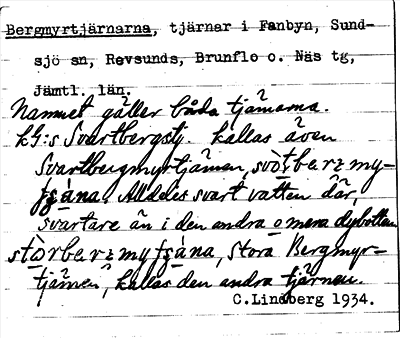 Bergmyrtjärnarna, tjärnar i Fanbyn, Sund-
sjö sn, Revsunds, Brunflo o. Näs tg,
Jämtl. län.
Namnet gäller båda tjärnarna.
kG:s Svartbergstj. kallas även
Svartbergmyrtjärnen,
Alldeles svart vatten där,
svartare än i den andra o mera dybotten.
Stora Bergmyr-
tjärnen, kallas den andra tjärnen.
C.Lindberg 1934.